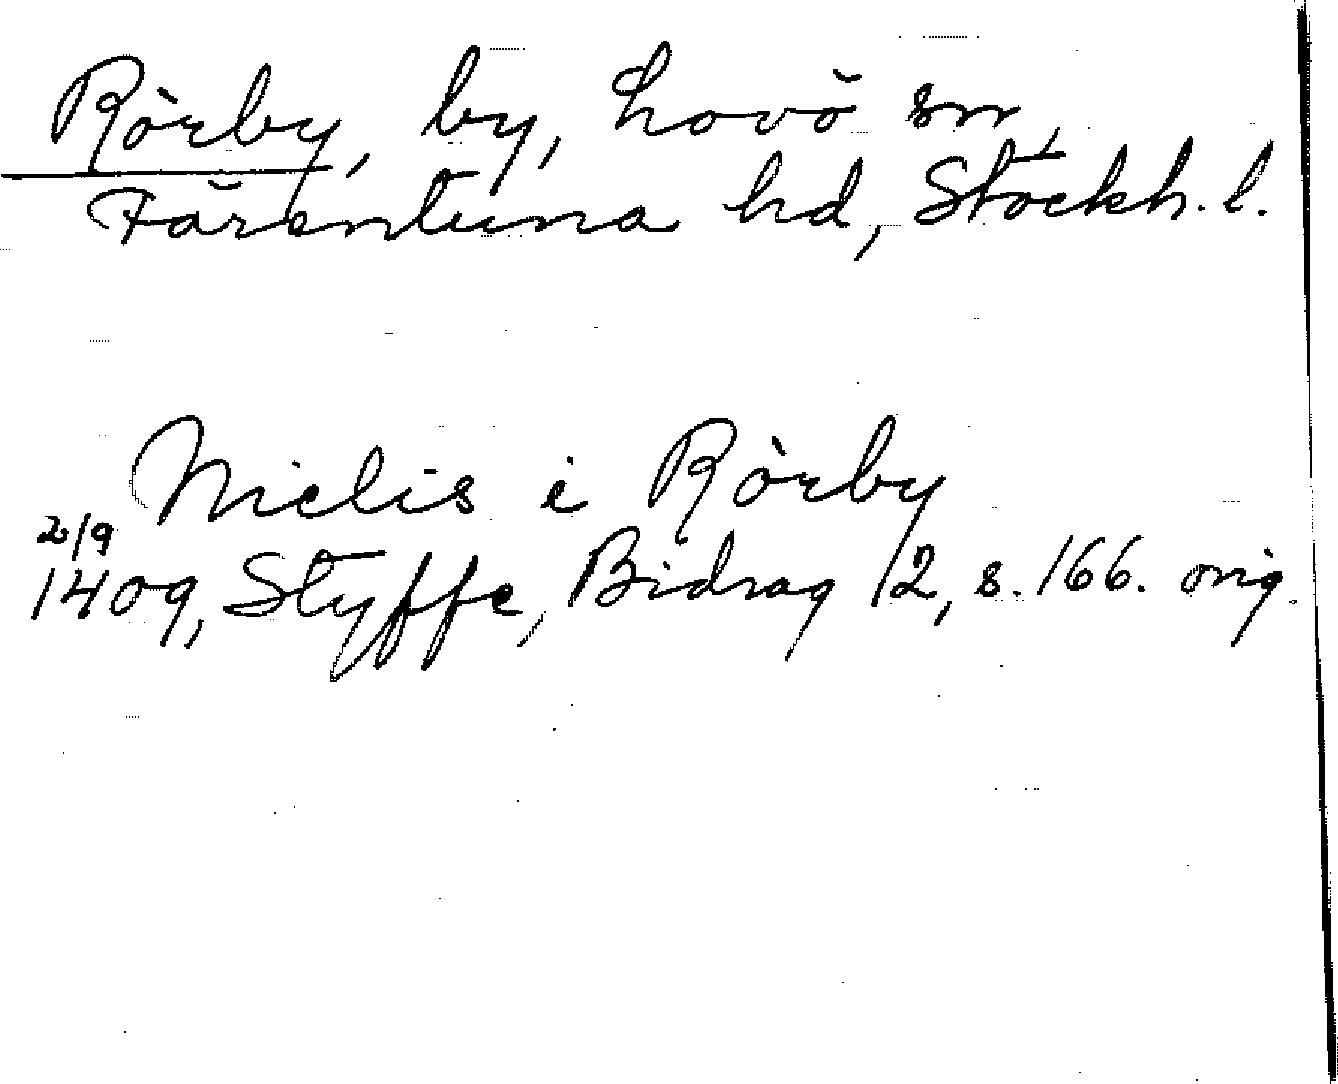 Rörby, by, Lovö sn,
Färentuna hd, Stockh. l.
Nielis i Rörby
2/9
1409, Styffe, Bidrag 2, s. 166. orig.